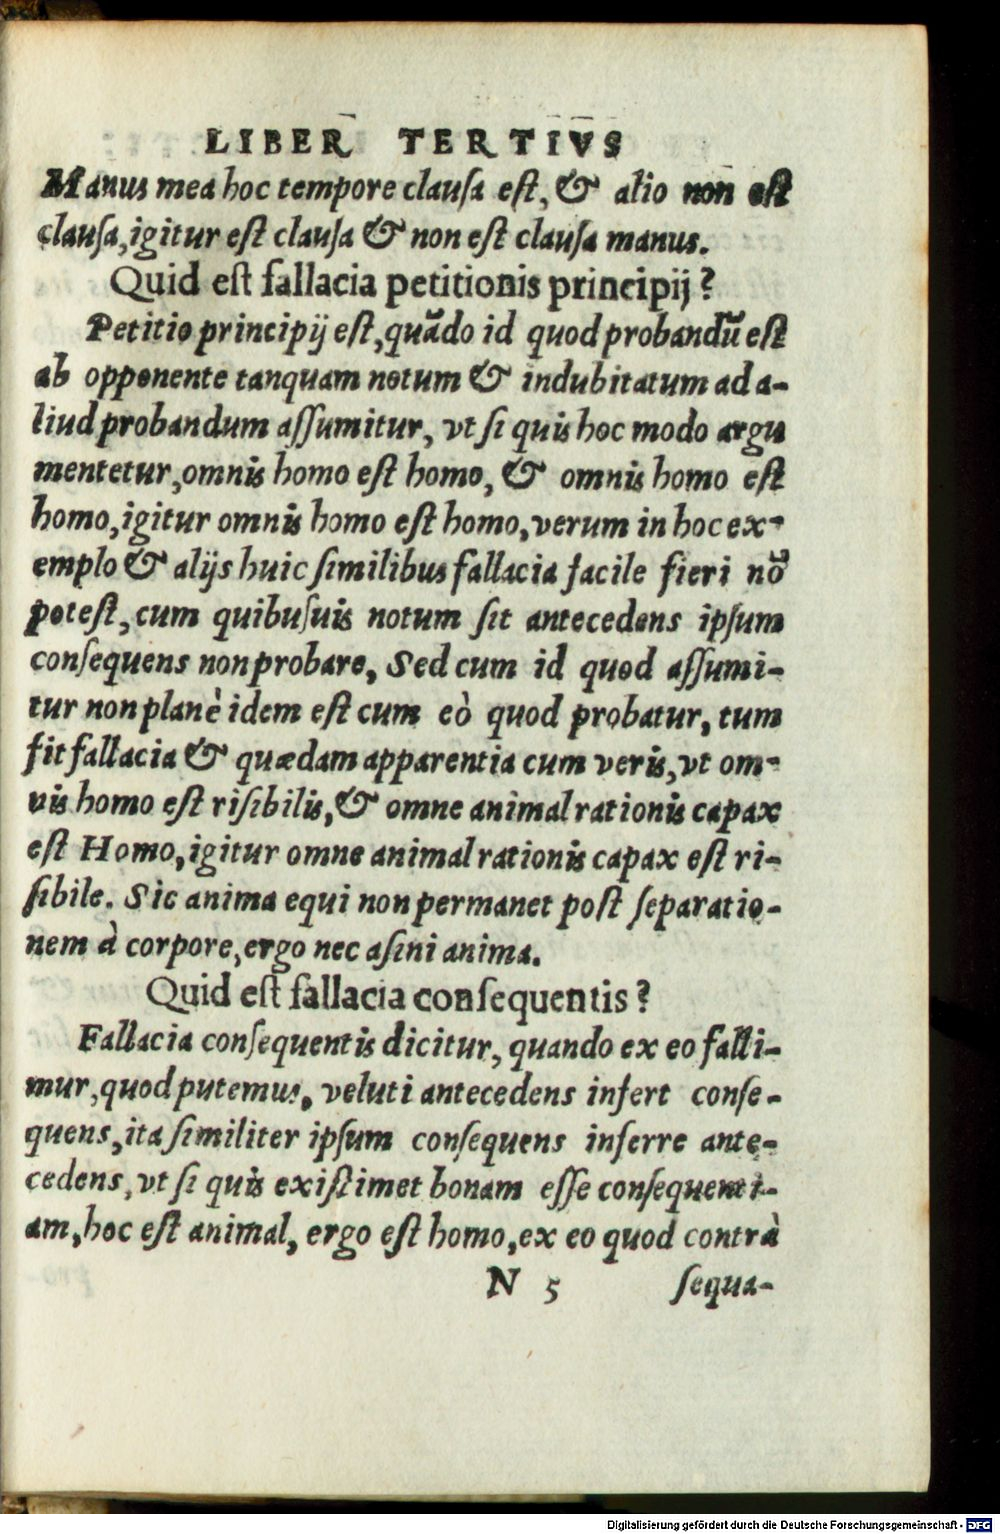 LIBER TERTIVS
Manus mea hoc tempore clauſa eſt, & alio non eſt
clauſa, igitur eſt clauſa & non eſt clauſa manus.
Quid eſt fallacia petitionis principij?
Petitio principij eſt, quãdo id quod probandũ eſt
ab opponente tanquam notum & indubitatum ad a-
liud probandum aſſumitur, vt ſi quis hoc modo argu
mentetur, omnis homo eſt homo, & omnis homo eſt
homo, igitur omnis homo eſt homo, verum in hoc ex-
emplo & alijs huic ſimilibus fallacia facile fieri nõ
poteſt, cum quibuſuis notum ſit antecedens ipſum
conſequens non probare, Sed cum id quod aſſumi-
tur non planè idem eſt cum eò quod probatur, tum
fit fallacia & quædam apparentia cum veris, vt om-
vis homo eſt riſibilis, & omne animal rationis capax
eſt Homo, igitur omne animal rationis capax eſt ri-
ſibile. Sic anima equi non permanet poſt ſeparatio-
nem à corpore, ergo nec aſini anima.
Quid eſt fallacia conſequentis?
Fallacia conſequentis dicitur, quando ex eo falli-
mur, quod putemus, veluti antecedens infert conſe-
quens, ita ſimiliter ipſum conſequens inferre ante-
cedens, vt ſi quis exiſtimet bonam eſſe conſequenti-
am, hoc eſt animal, ergo eſt homo, ex eo quod contrà
N 5 ſequa-
Digitalisierung gefördert durch die Deutsche Forschungsgemeinschaft - DFG